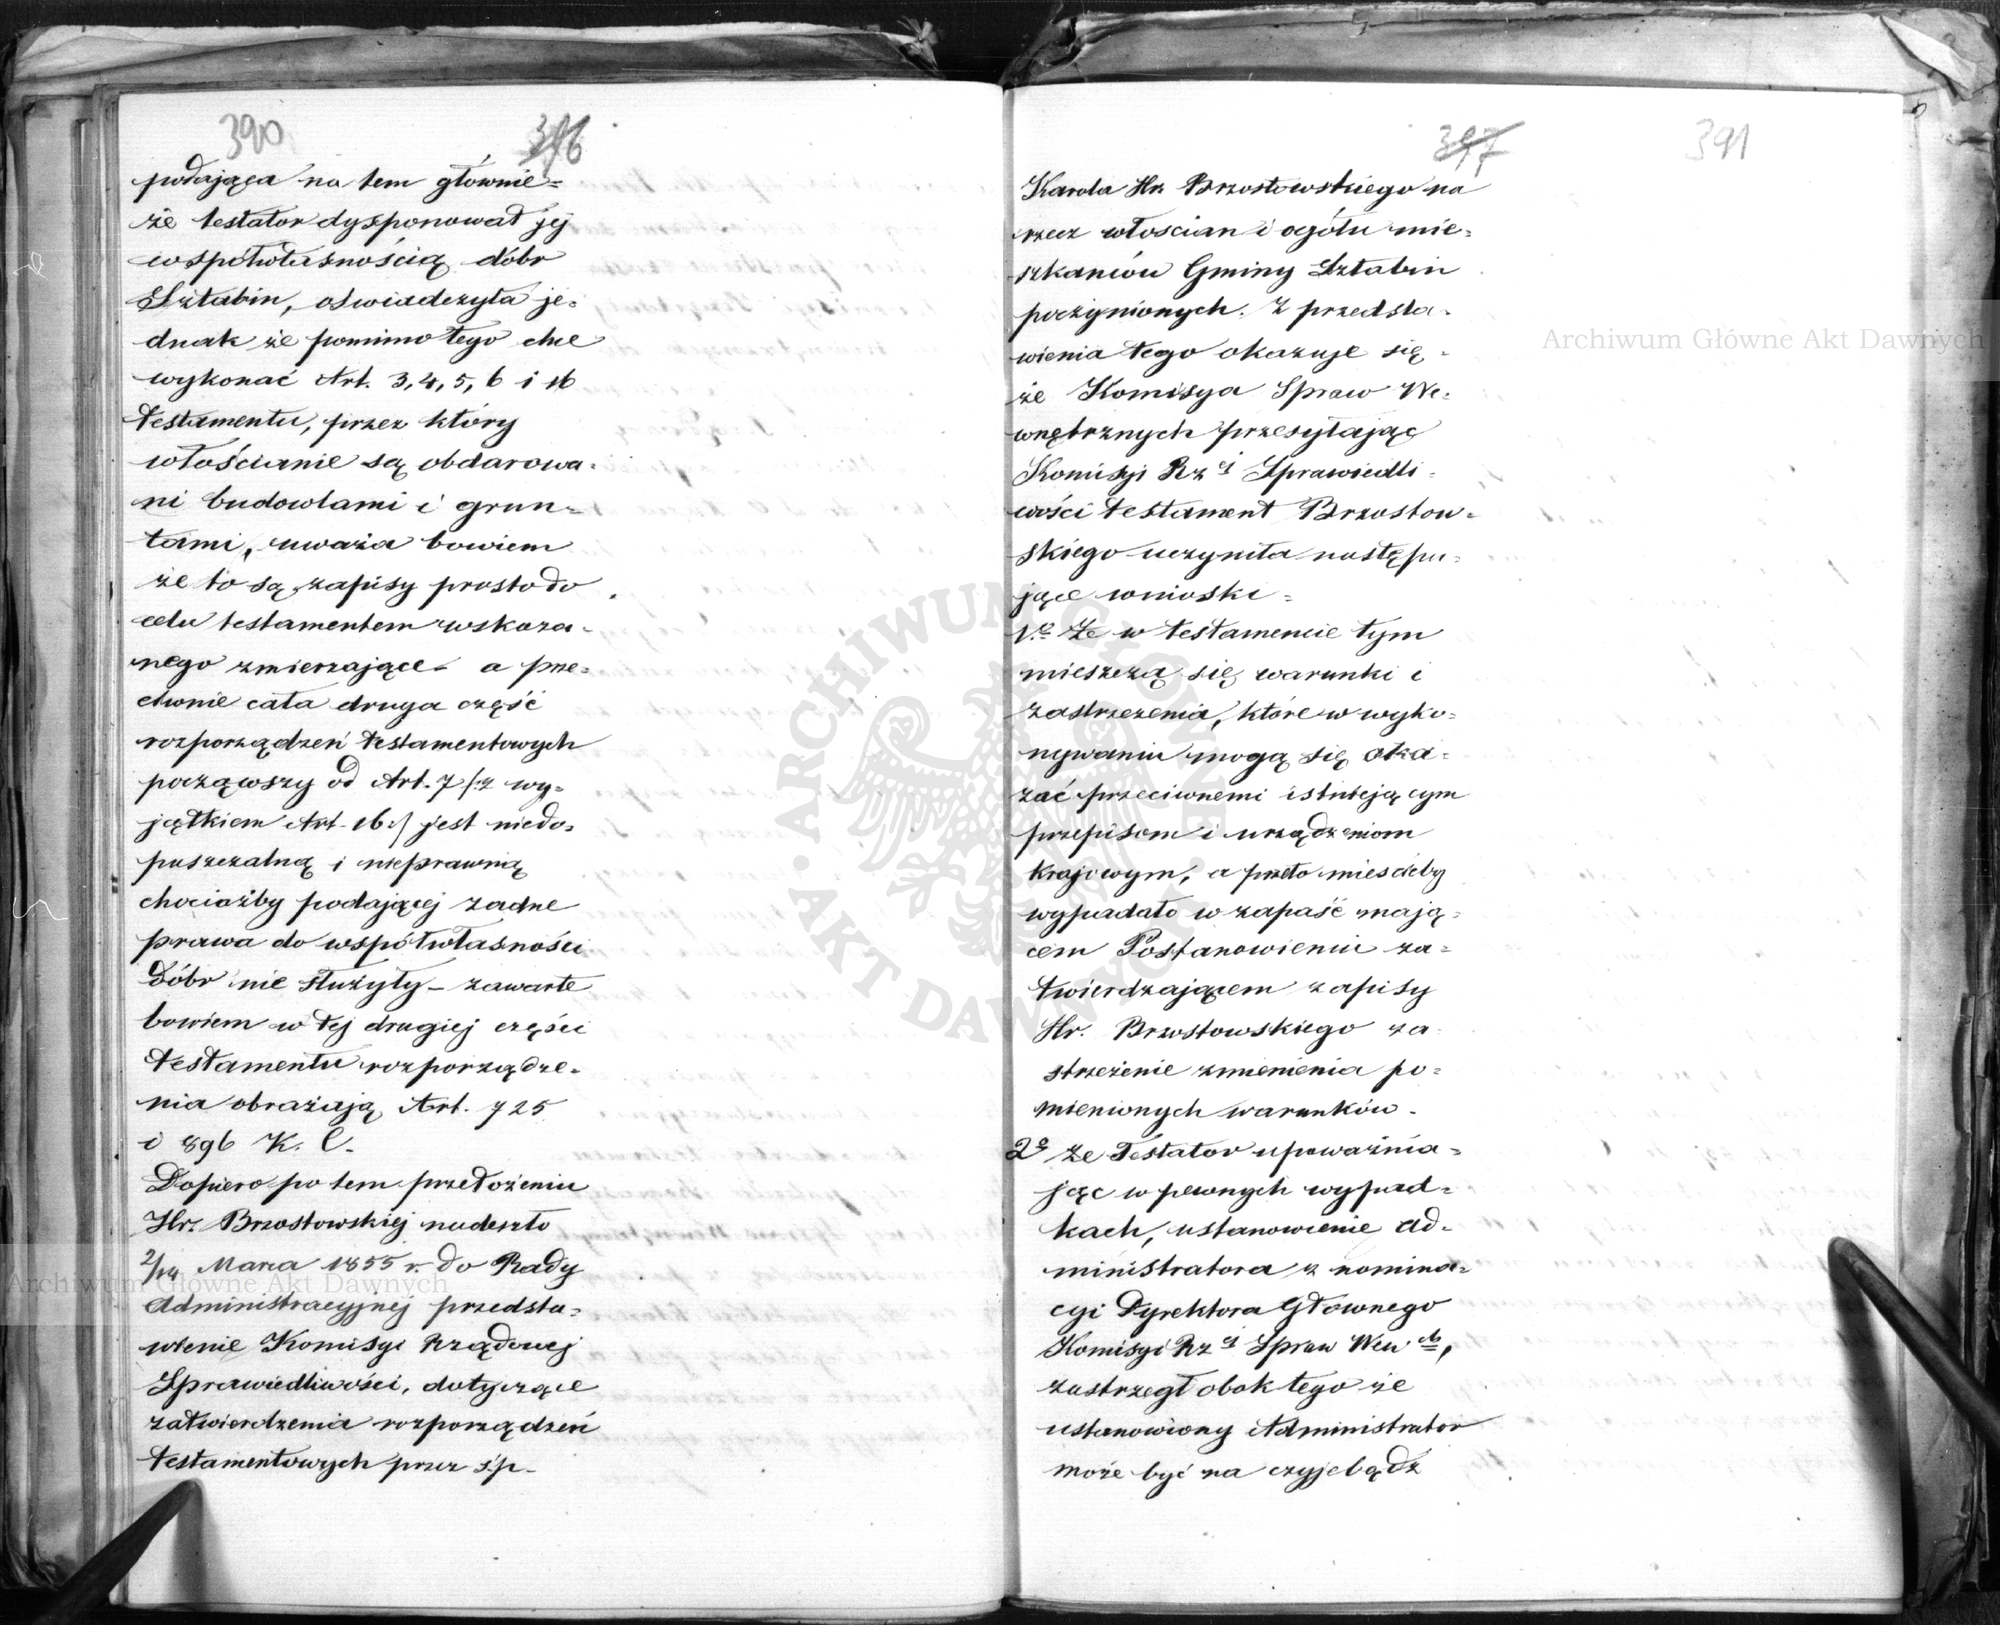 390
376
podająca na tem głównie=
że testator dysponował jej
współwłasnością dóbr
Sztabin, oświadczyła je=
dnak że pomimo tego chce
wykonać Art. 3, 4, 5, 6 i 16
testamentu, przez który
włościanie są obdarowa=
ni budowlami i grun=
tami, uważa bowiem
że to są zapisy prosto do
celu testamentem wskaza=
nego zmierzające - a prze=
ciwnie cała druga część
rozporządzeń testamentowych
począwszy od Art. 7 /:z wy=
jątkiem Art. 16:/ jest niedo=
puszczalną i nieprawną
chociażby podającej żadne
prawa do współwłasności
Dóbr nie służyły - zawarte
bowiem w tej drugiej części
testamentu rozporządze=
nia obrażają Art. 725
i 896 K. C.
Dopiero po tem przełożeniu
Hr. Brzostowskiej nadeszło
2/14 Marca 1855 r. do Rady
Administracyjnej przedsta=
wienie Komisyi Rządowej
Sprawiedliwości, dotyczące
zatwierdzenia rozporządzeń
testamentowych przez ś.p.
397
391
Karola Hr. Brzostowskiego na
rzecz włościan i ogółu mie=
szkańców Gminy Sztabin
poczynionych. Z przedsta=
wienia tego okazuje się
że Komisya Spraw We=
wnętrznych przesyłając
Komisyi Rz ej Sprawiedli=
wości testament Brzostow=
skiego uczyniła następu=
jące wnioski =
1.o Że w testamencie tym
mieszczą się warunki i
zastrzeżenia, które w wyko=
nywaniu mogą się oka=
zać przeciwnemi istniejącym
przepisom i urządzeniom
krajowym, a przeto mieścieby
wypadało w zapaść mają=
cem Postanowieniu za=
twierdzającem zapisy
Hr. Brzostowskiego za
strzeżenie zmienienia po=
mienionych warunków.
2o że Testator upoważnia=
jąc w pewnych wypad=
kach, ustanowienie ad=
ministratora z nomina=
cyi Dyrektora Głównego
Komisyi Rz ej Spraw Wew ch,
zastrzegł obok tego że
ustanowiony Administrator
może być na czyjebądź
Archiwum Główne Akt Dawnych
Archiwum Główne Akt Dawnych
ARCHIWUM GŁÓWNE AKT DAWNYCH